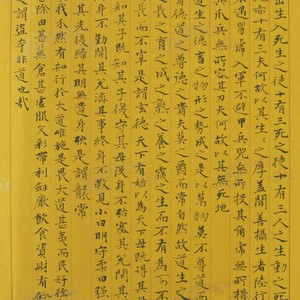 出生入死生之徒十有三死之徒十有三人之生動之死
亦十有三夫何故以其生〻之厚蓋聞善攝生者陸行
遇兕虎入軍不被甲兵兕無所投其角虎無所措
其爪兵無所容其刃夫何故以其無死地
道生之德畜之物形之勢成之是以萬物莫不尊道
德道之尊德之貴夫莫之爵而常自然故道生之
之長之育之成之熟之養之覆之生而不有為
長而不宰是謂玄德天下有始以為天下母既得其
知其子既知其子復守其母沒身不殆塞其兌閉其
身不勤開其兌濟其事終身不救見小曰明守柔曰強
其光復歸其明無遺身殃是謂襲常
我介然有知行於大道唯施是畏大道甚夷而民好徑
除田甚蕪倉甚虛服文彩帶利劍厭飲食資財有餘
謂盜夸非道也哉